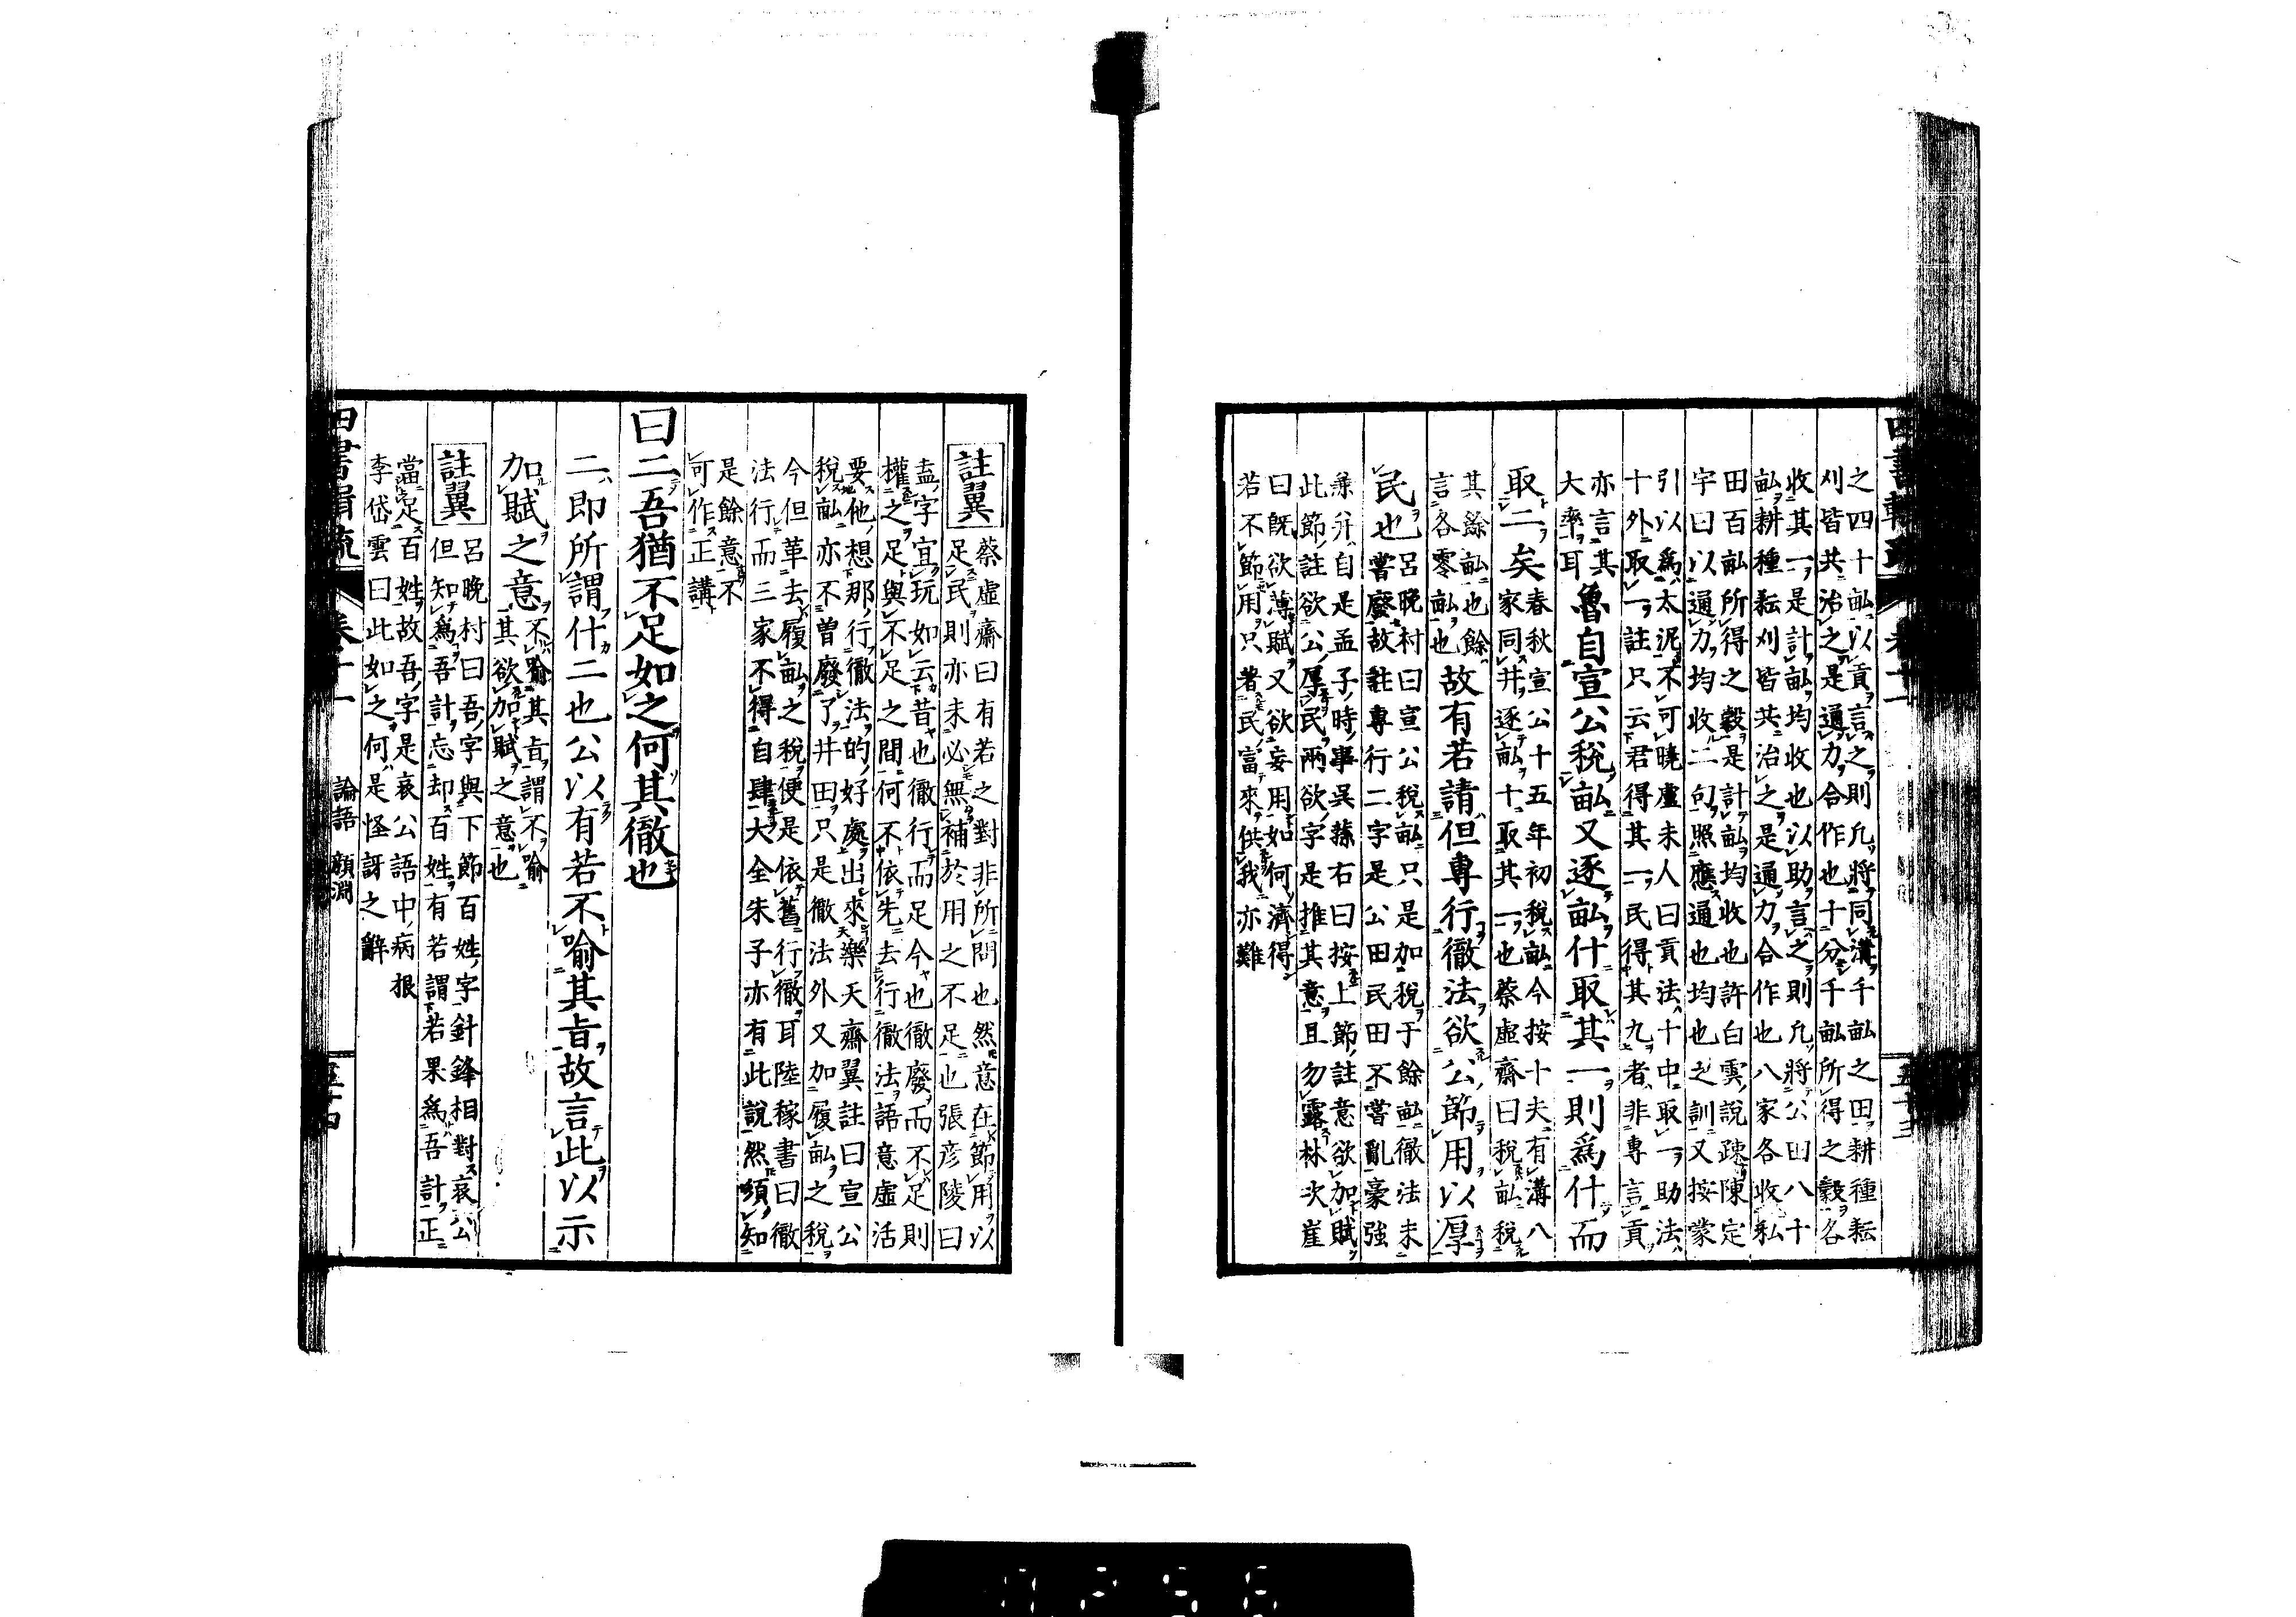 之四十畝以貢言之則凡將同溝千畝之田耕種耘
刈皆共治之是通力合作也十分千畝所得之穀各
收其一是計畝均收也以助言之則凡將公田八十
畝耕種耘刈皆共治之是通力合作也八家各收私
田百畝所得之穀是計畝均收也許白雲說疎陳定
宇曰以通力均收二句照應通也均也之訓又按蒙
引以為太泥不可曉盧未人曰貢法十中取一助法
十外取一註只云君得其一民得其九者非專言貢
亦言其
大率耳
魯自宣公稅畝又逐畝什取其一則為什而
取二矣
春秋宣公十五年初稅畝今按十夫有溝八
家同井逐畝十取其一也蔡虛齋曰稅畝稅
其餘畝也餘
言各零畝也
故有若請但專行徹法欲公節用以厚
民也
呂晚村曰宣公稅畝只是加稅于餘畝徹法未
嘗廢故註專行二字是公田民田不嘗亂豪強
兼并自是孟子時事吳蓀右曰按上節註意欲加賦
此節註欲公厚民兩欲字是推其意且勿露林次崖
曰既欲薄賦又欲妄用如何濟得
若不節用只著民富來供我亦難
註翼
蔡虛齋曰有若之對非所問也然意在節用以
足民則亦未必無補於用之不足也張彥陵曰
盍字宜玩如云昔也徹行而足今也徹廢而不足則
權之足與不足之間何不依先去行徹法語意虛活
要他想那行徹法的好處出來樂天齋翼註曰宣公
稅畝亦不曾廢了井田只是徹法外又加履畝之稅
今但革去履畝之稅便是依舊行徹耳陸稼書曰徹
法行而三家不得自肆大全朱子亦有此說然須知
是餘意不
可作正講
曰二吾猶不足如之何其徹也
二即所謂什二也公以有若不喻其旨故言此以示
加賦之意
不喻其旨謂不喻
其欲加賦之意也
註翼
呂晚村曰吾字與下節百姓字針鋒相對哀公
但知為吾計忘却百姓有若謂若果為吾計正
當足百姓故吾字是哀公語中病根
李岱雲曰此如之何是怪訝之辭
卷十一
論語 顏淵
五十四